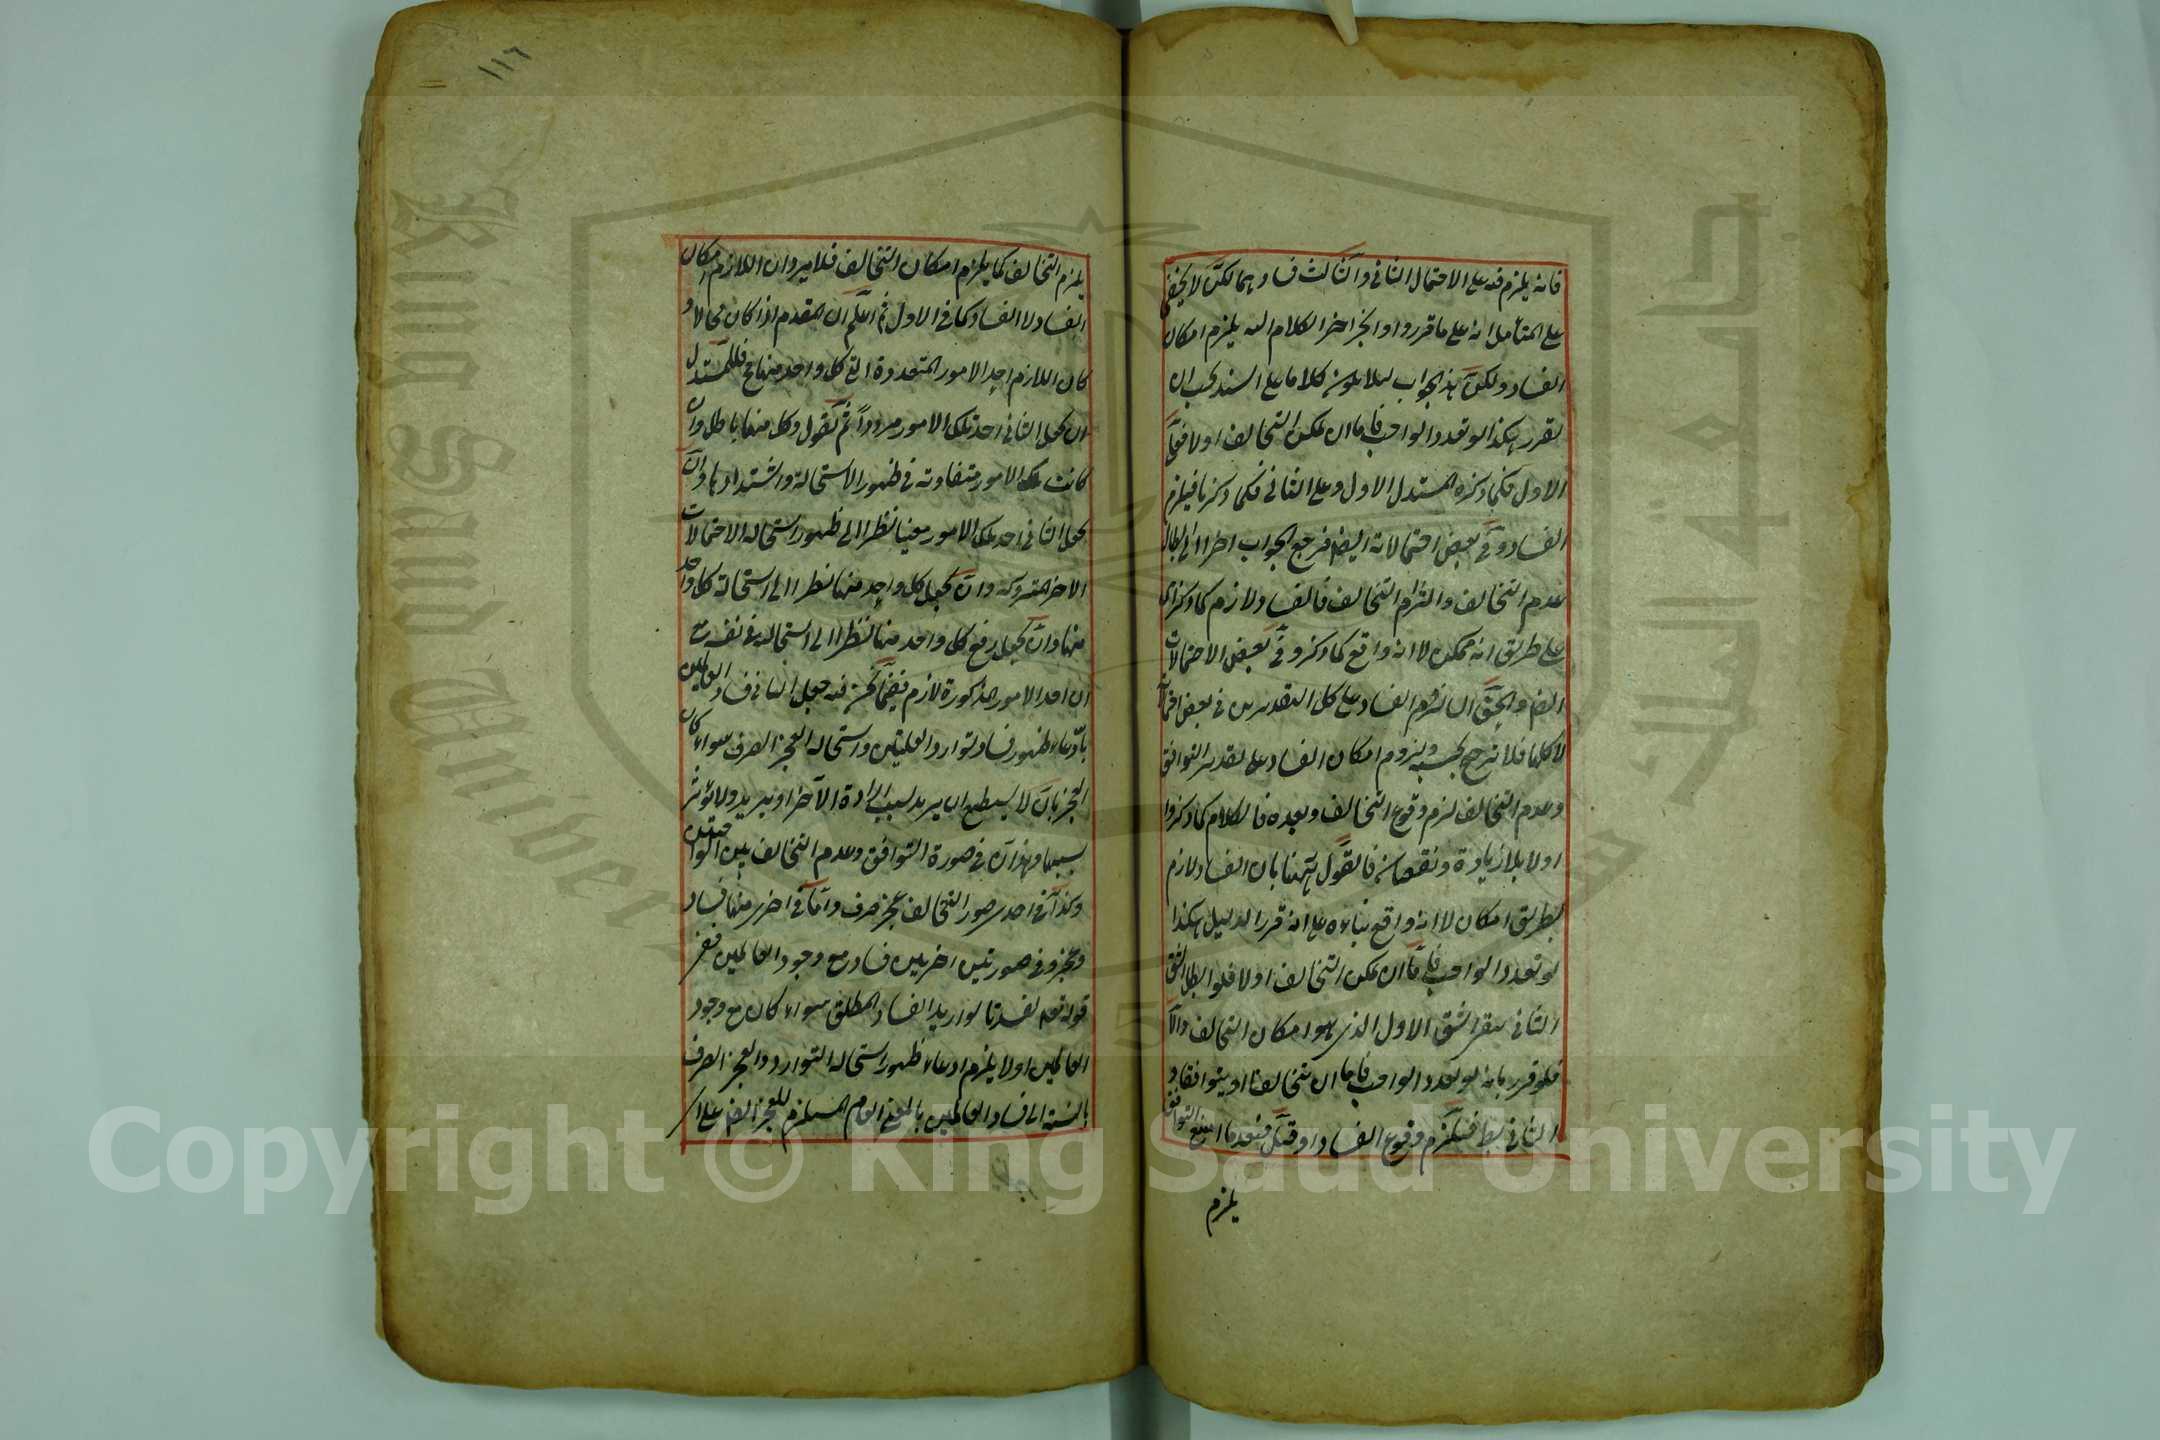 فانه يلزم فيه على الاحتمال الثاني والثالث فسادهما لكن لا يخفى
على المتأمل انه على ما قرروا الكلام اليه يلزم امكان
الفساد ولكن هذا الجواب لئلا يكون كلاما على السند يجب ان
يقرر هكذا لو تعدد الواجب فاما ان يمكن التخالف اولا فعلى
الاول فكما ذكره المستدل الاول وعلى الثاني فكما ذكرنا فيلزم
الفساد وفي بعض احتمالاته ايضا فرجع الجواب اخرا الى ابطال
عدم التخالف والتزام التخالف فالفساد لازم كما ذكر
على طريق انه ممكن لا انه واقع كما ذكر وفي بعض الاحتمالات
ايضا والحق ان لزوم الفساد على كل التقديرين في بعض
لا كلها فلا ترجح لزوم امكان الفساد على تقدير التوافق
وعدم التخالف لزم وقوع التخالف وبعده فالكلام كما ذكروا
اولا بلا زيادة ونقصان فالقول ههنا بان الفساد لازم
بطريق امكان لا انه واقع بناءه على انه قرر الدليل هكذا
لو تعدد الواجب فاما ان يمكن التخالف اولا فلو ابطل الشق
الثاني بقي الشق الاول الذي هو امكان التخالف والا
فلو قرر بانه لو تعدد الواجب فاما ان يتخالفا او يتوافقا و
الثاني بط فيلزم وقوع الفساد او قيل فبعد ما امتنع التوافق
يلزم
١١٦
يلزم التخالف كما يلزم امكان التخالف فلا يرد ان اللازم امكان
الفساد لا الفساد كما في الاول ثم اعلم ان المقدم اذا كان محالا و
كان اللازم احد الامور المتعددة التي كل واحد منها مح فللمستدل
ان يجعل الثاني احد تلك الامور مرددا ثم يقول وكل منها باطل وان
كانت تلك الامور متفاوته في ظهور الاستحالة واشتدادها وان
يجعل الثاني احد تلك الامور معينا نظرا الى ظهور استحاله الاحتمالات
الاخر المتروكه وان يجعل كل واحد منها نظرا الى استحالة كل واحد
منها وان يجعل رفع كل واحد منها نظرا الى استحاله في نفسه مع
ان احد الامور المذكورة لازم فيما نحن فيه جعل الثاني فساد العالمين
بادعاء ظهور فساد توارد العليتين واستحاله العجز الصرف سواء كان
العجز بان لا يستطيع ان يريد لسبب ارادة الآخر او يريد ولا يؤثر
لسببها وهذان في صورة التوافق وعدم التخالف بين المتوافقين
وكذا في احد صور التخالف عجز صرف واما في اخرى منها فساد
وعجز وفي صورتين اخريين فساد مع وجود العالمين ففي
قوله تعم لفسدتا لو اريد الفساد المطلق سواء كان مع وجود
العالمين اولا يلزم ادعاء ظهور استحاله التوارد والعجز الصرف
بالنسبة الى فساد العالمين بالمعنى العام المستلزم للعجز ايضا على
King Saud University
Copyright © King Saud University